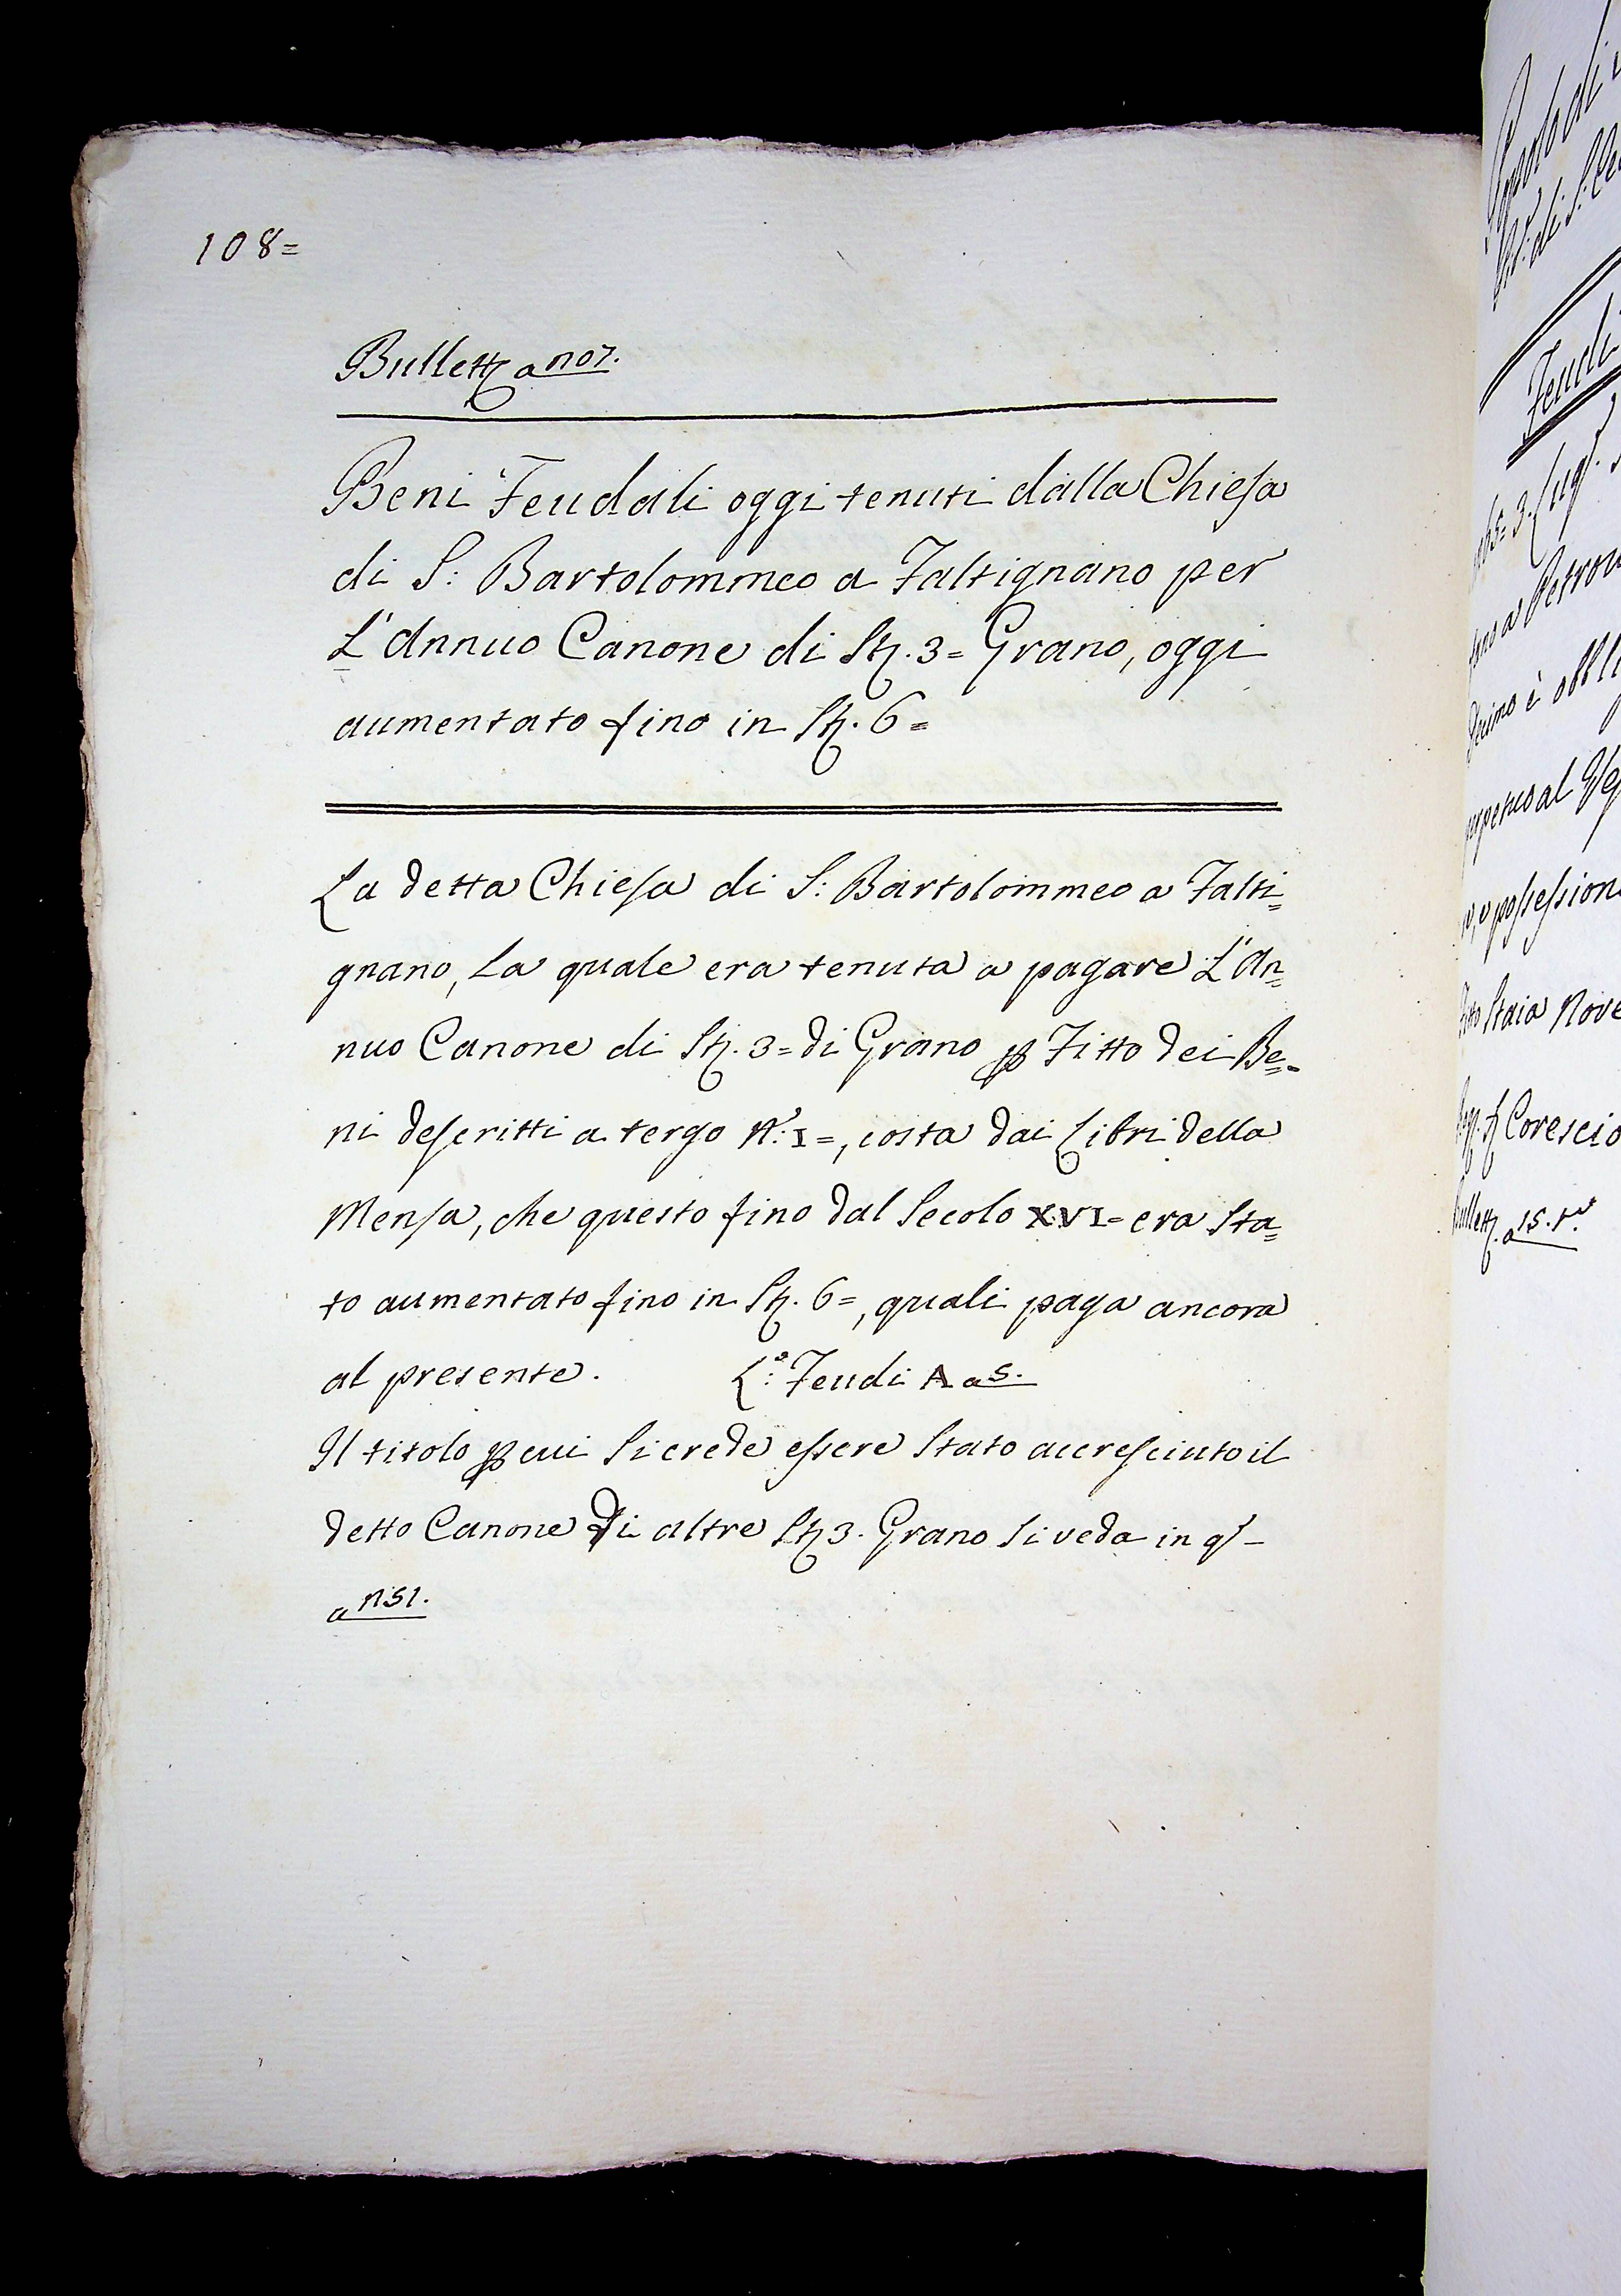 108=
Bullett. a n07.
Beni Feudali oggi tenuti dalla Chiesa
di S: Bartolommeo a Faltignano per
L'Annuo Canone di St. 3= Grano, oggi
aumentato fino in St. 6=
La detta Chiesa di S: Bartolommeo a Falti=
gnano, La quale era tenuta a pagare L'An=
nuo Canone di St. 3= di Grano ꝑ Fitto dei Be=
ni descritti a tergo N:° I=, costa dai Libri della
Mensa, che questo fino dal Secolo XVI= era Sta=
to aumentato fino in St. 6=, quali paga ancora
al presente. L:° Feudi A a 5.
Il titolo ꝑ cui Si crede essere Stato accresciuto il
detto Canone di altre St. 3. Grano Si veda in qs-
a n51.
Feudi
3. Lugl.
a Petron
è obbli
al
possession
Staia Nove
Corescio
Bullett. a 15. t°